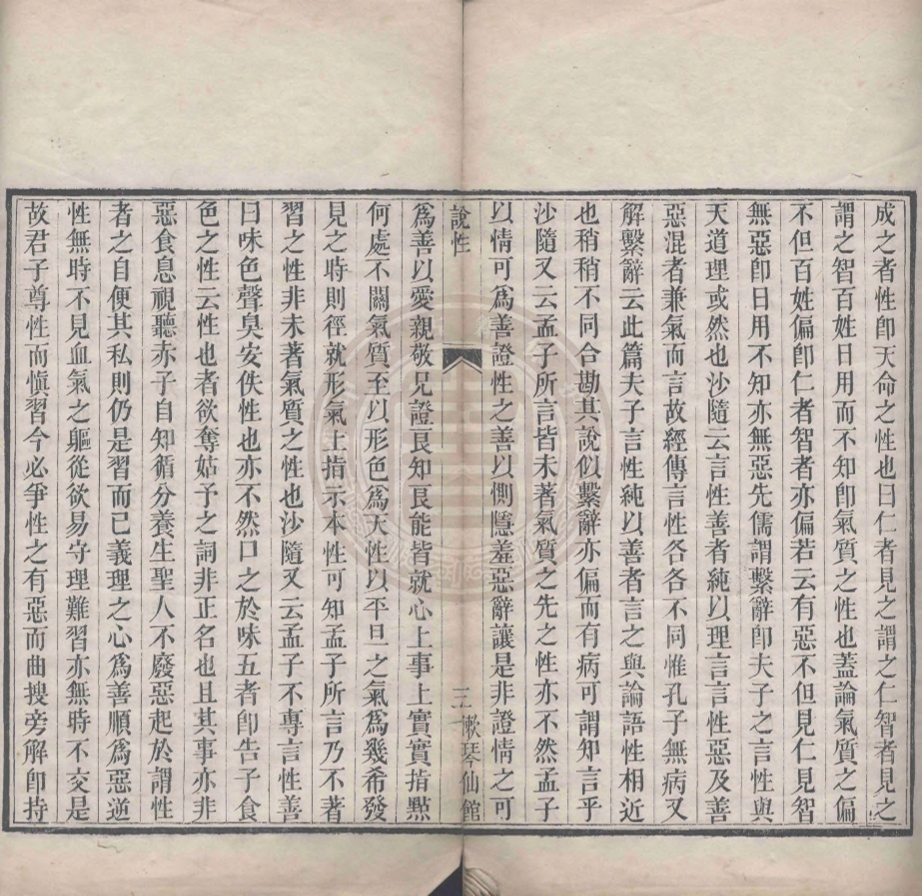 成之者性即天命之性也曰仁者見之謂之仁智者見之
謂之智百姓日用而不知即氣質之性也蓋論氣質之偏
不但百姓偏即仁者智者亦偏若云有惡不但見仁見智
無惡即日用不知亦無惡先儒謂繫辭即夫子之言性與
天道理或然也沙隨云言性善者純以理言言性惡及善
惡混者兼氣而言故經傳言性各各不同惟孔子無病又
解繫辭云此篇夫子言性純以善者言之與論語性相近
也稍稍不同合勘其說似繫辭亦偏而有病可謂知言乎
沙隨又云孟子所言皆未著氣質之先之性亦不然孟子
以情可爲善證性之善以惻隱羞惡辭讓是非證情之可
說性
三
漱琴仙館
爲善以愛親敬兄證良知良能皆就心上事上實實指㸃
何處不關氣質至以形色爲天性以平旦之氣爲幾希發
見之時則徑就形氣上指示本性可知孟子所言乃不著
習之性非未著氣質之性也沙隨又云孟子不專言性善
曰味色聲臭安佚性也亦不然口之於味五者即告子食
色之性云性也者欲奪姑予之詞非正名也且其事亦非
惡食息視聽赤子自知循分養生聖人不廢惡起於謂性
者之自便其私則仍是習而已義理之心爲善順爲惡逆
性無時不見血氣之軀從欲易守理難習亦無時不交是
故君子尊性而愼習今必爭性之有惡而曲搜旁解即持